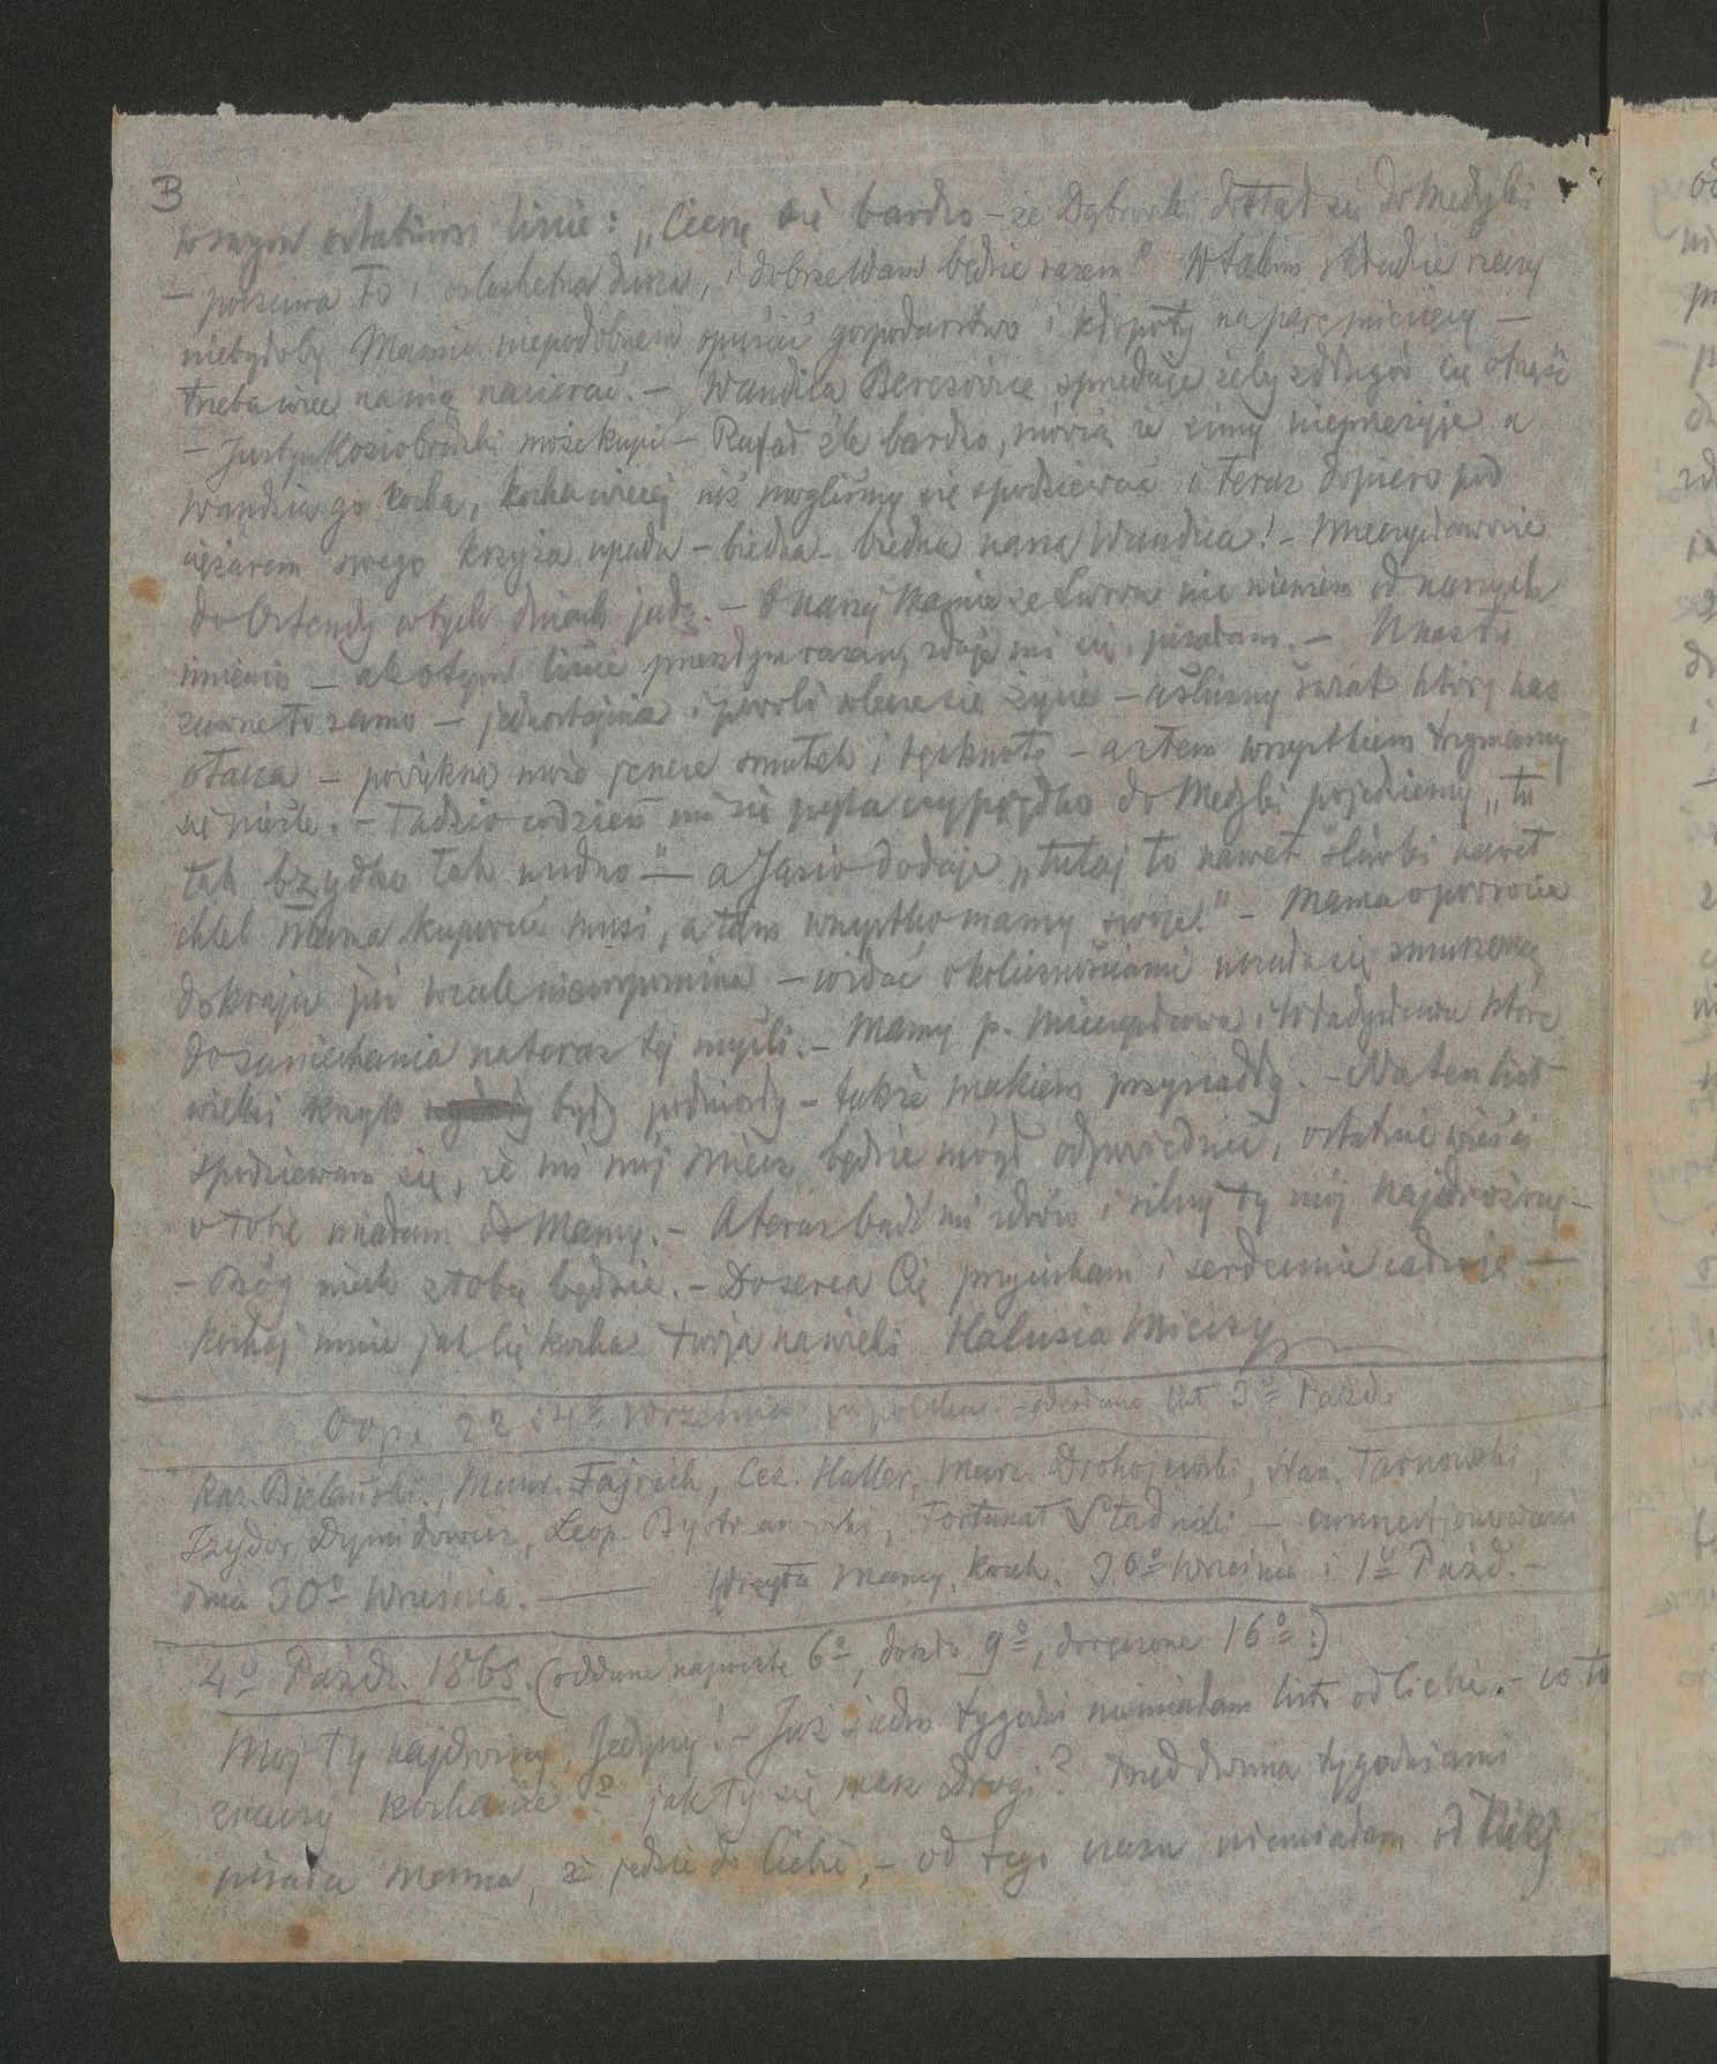 3
w swym ostatnim liście: „Cieszę się bardzo – że Dąbrowski dostał się do Medyki
– poczciwa to i szlachetna dusza, i dobrze Wam będzie razem" W takim składzie rzeczy
niebyłoby Mamie niepodobnem opuścić gospodarstwo i kłopoty na parę miesięcy –
trzeba więc na nią nacierać. – Wandzia Berezowicę sprzedaje żeby z długów się otrząść
– Justyn Koziobrodzki może kupi – Rafał źle bardzo, mówią że zimy nieprzeżyje a
Wandzia go kocha, kocha więcej niż mogliśmy się spodziewać i teraz dopiero pod
ciężarem swego krzyża upada – biedna – biedna nasza Wandzia! – Mieczysławowie
do Ostendy w tych dniach jadą. – O naszej Mamie ze Lwowa nic niewiem od naszych
imienin – ale o tym liście przeszłym razem, zdaje mi się, pisałam. – U nas tu
zawsze to samo – jednostajnie i powoli wlecze się życie – a śliczny świat który nas
otacza – powiększa może jeszcze smutek i tęsknotę – a z tem wszystkiem trzymamy
się nieźle. – Tadzio codzień mi się pyta czy prędko do Medyki pojedziemy „tu
tak bzydko tak nudno" – a Jasio dodaje „tutaj to nawet śliwki nawet
chleb Mama kupować musi, a tam wszystko mamy swoje." – Mama o powrocie
do kraju już wcale niewspomina – widać okolicznościami uczuła się zmuszoną
do zaniechania na teraz tej myśli. – Mamy p. Mieczysława i Władysława które
wielki krzyk były podniosły – także makiem przysiadły. – Na ten list
spodziewam się, że mi mój Miecz będzie mógł odpowiedzieć, ostatnie wieści
o tobie miałam od Mamy. – A teraz bądź mi zdrów i silny ty mój najdroższy –
– Bóg niech z tobą będzie. – Do serca Cię przyciskam i serdecznie całuję –
Kochaj mnie jak Cię kocha twoja na wieki Halusia Mieczy
Odp. 22 i 4º Września odesłano list 3º Paźd.
Kaz. Bielański, Maur. Fajrich, Cez. Haller, Marc. Drohojewski, Stan. Tarnowski,
Izydor Dymidowicz, Leop. Bystrzanowski, Fortunat Stadnicki – amnestjonowani
dnia 30º Września. — Wizyta Mamy koch. 30º Września i 1º Paźd. –
4º Paźdz. 1865. (oddane na pocztę 6º, doszło 9º, doręczone 16º :)
Mój Ty najdroższy, Jedyny! – Już siedm tygodni niemiałam listu od Ciebie. – co to
znaczy kochanie? jak Ty się masz Drogi? Przed dwoma tygodniami
pisała Mama, że jedzie do Ciebie, – od tego czasu niemiałam od Niej